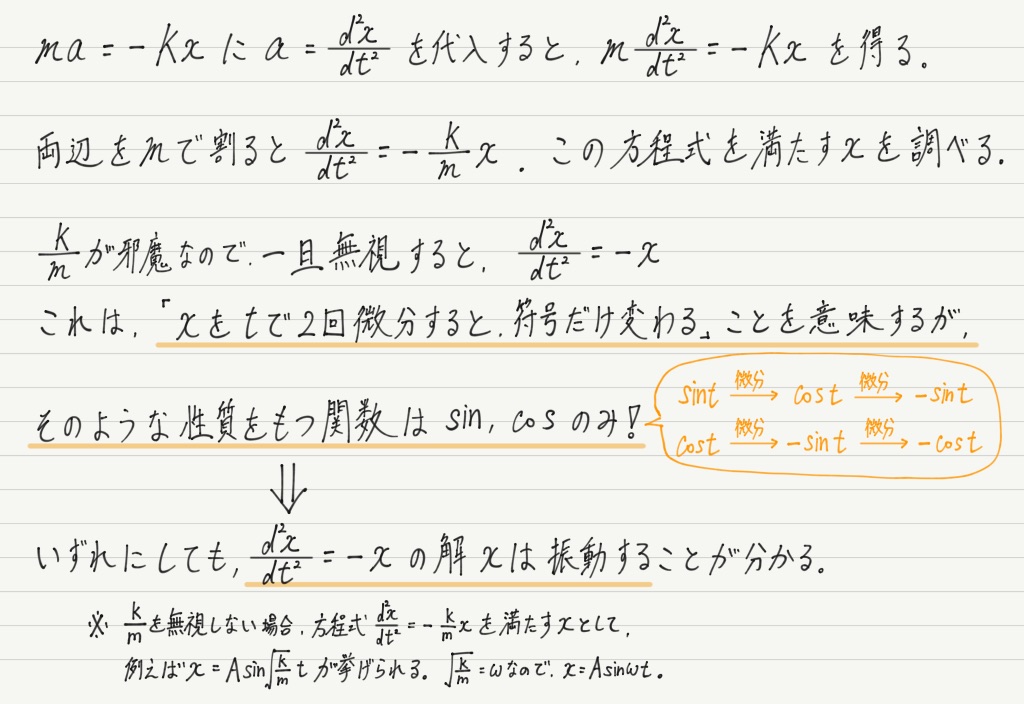 ma = -kx に a = d²x/dt² を代入すると, m d²x/dt² = -kx を得る。
両辺をmで割ると d²x/dt² = -k/m x . この方程式を満たすxを調べる.
k/m が邪魔なので, 一旦無視すると, d²x/dt² = -x
これは,「xをtで2回微分すると, 符号だけ変わる」ことを意味するが,
そのような性質をもつ関数は sin, cos のみ!
sint 微分→ cost 微分→ -sint
cost 微分→ -sint 微分→ -cost
⇓
いずれにしても, d²x/dt² = -x の解 x は振動することが分かる。
※ k/m を無視しない場合, 方程式 d²x/dt² = -k/m x を満たすxとして,
例えば x = A sin√(k/m) t が挙げられる。 √(k/m) = ω なので, x = A sinωt。